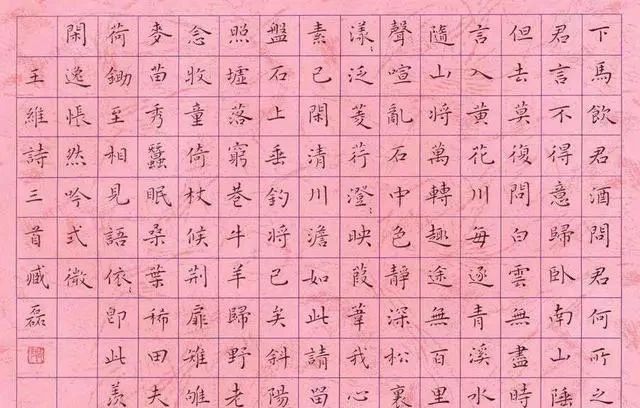 下馬飲君酒問君何所之
君言不得意歸臥南山陲
但去莫復問白雲無盡時
言入黃花川每逐青溪水
隨山將萬轉趣途無百里
聲喧亂石中色靜深松裏
漾:泛菱荇澄:映葭葦我心
素已閑清川澹如此請留
盤石上垂釣將已矣斜陽
照墟落窮巷牛羊歸野老
念牧童倚杖候荊扉雉雊
麥苗秀蠶眠桑葉稀田夫
荷鋤至相見語依:即此羨
閑逸悵然吟式微
王維詩三首臧磊